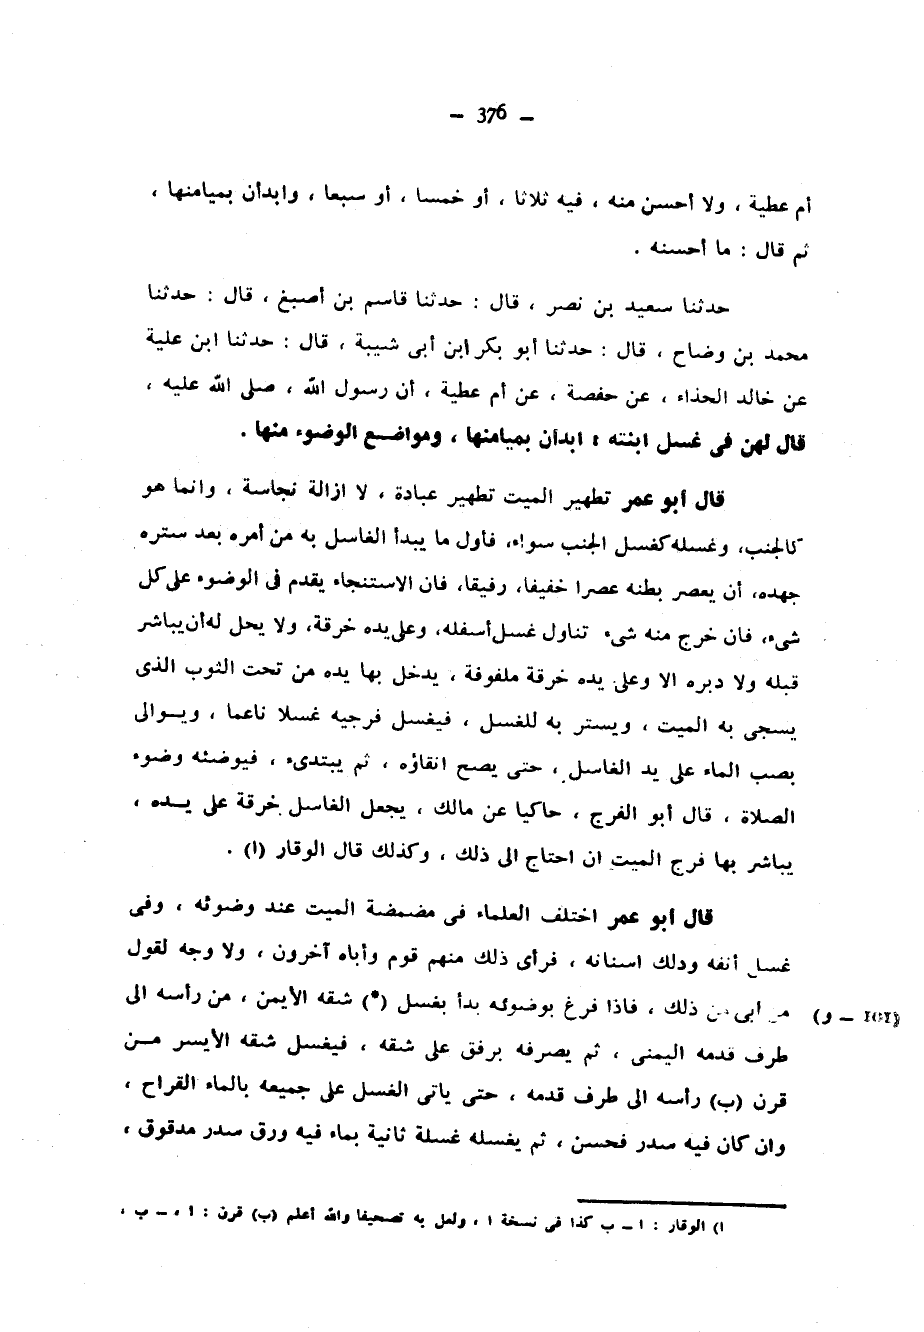 — 376 —
أم عطية ، ولا أحسن منه ، فيه ثلاثا ، أو خمسا ، أو سبعا ، وابدأن بميامنها ،
ثم قال : ما أحسنه .
حدثنا سعيد بن نصر ، قال : حدثنا قاسم بن أصبغ ، قال : حدثنا
محمد بن وضاح ، قال : حدثنا أبو بكر ابن أبى شيبة ، قال : حدثنا ابن علية
عن خالد الحذاء ، عن حفصة ، عن أم عطية ، أن رسول الله ، صلى الله عليه ،
قال لهن فى غسل ابنته : ابدأن بميامنها ، ومواضع الوضوء منها .
قال أبو عمر تطهير الميت تطهير عبادة ، لا ازالة نجاسة ، وانما هو
كالجنب، وغسله كغسل الجنب سواء، فأول ما يبدأ الغاسل به من أمره بعد ستره
جهده، أن يعصر بطنه عصرا خفيفا، رفيقا، فان الاستنجاء يقدم فى الوضوء على كل
شىء، فان خرج منه شىء تناول غسل أسفله، وعلى يده خرقة، ولا يحل له أن يباشر
قبله ولا دبره الا وعلى يده خرقة ملفوفة ، يدخل بها يده من تحت الثوب الذى
يسجى به الميت ، ويستر به للغسل ، فيغسل فرجيه غسلا ناعما ، ويوالى
بصب الماء على يد الغاسل ، حتى يصح انقاؤه ، ثم يبتدىء ، فيوضئه وضوء
الصلاة ، قال أبو الفرج ، حاكيا عن مالك ، يجعل الغاسل خرقة على يده ،
يباشر بها فرج الميت ان احتاج الى ذلك ، وكذلك قال الوقار (ا) .
قال أبو عمر اختلف العلماء فى مضمضة الميت عند وضوئه ، وفى
غسل أنفه ودلك اسنانه ، فرأى ذلك منهم قوم وأباه آخرون ، ولا وجه لقول
من أبى من ذلك ، فاذا فرغ بوضوئه بدأ بغسل (*) شقه الأيمن ، من رأسه الى
طرف قدمه اليمنى ، ثم يصرفه برفق على شقه ، فيغسل شقه الأيسر من
قرن (ب) رأسه الى طرف قدمه ، حتى ياتى الغسل على جميعه بالماء القراح ،
وان كان فيه سدر فحسن ، ثم يغسله غسلة ثانية بماء فيه ورق سدر مدقوق ،
ا) الوقار : ا ـ ب كذا فى نسخة ا ، ولعل به تصحيفا والله أعلم (ب) قرن : ا ، ـ ب ،